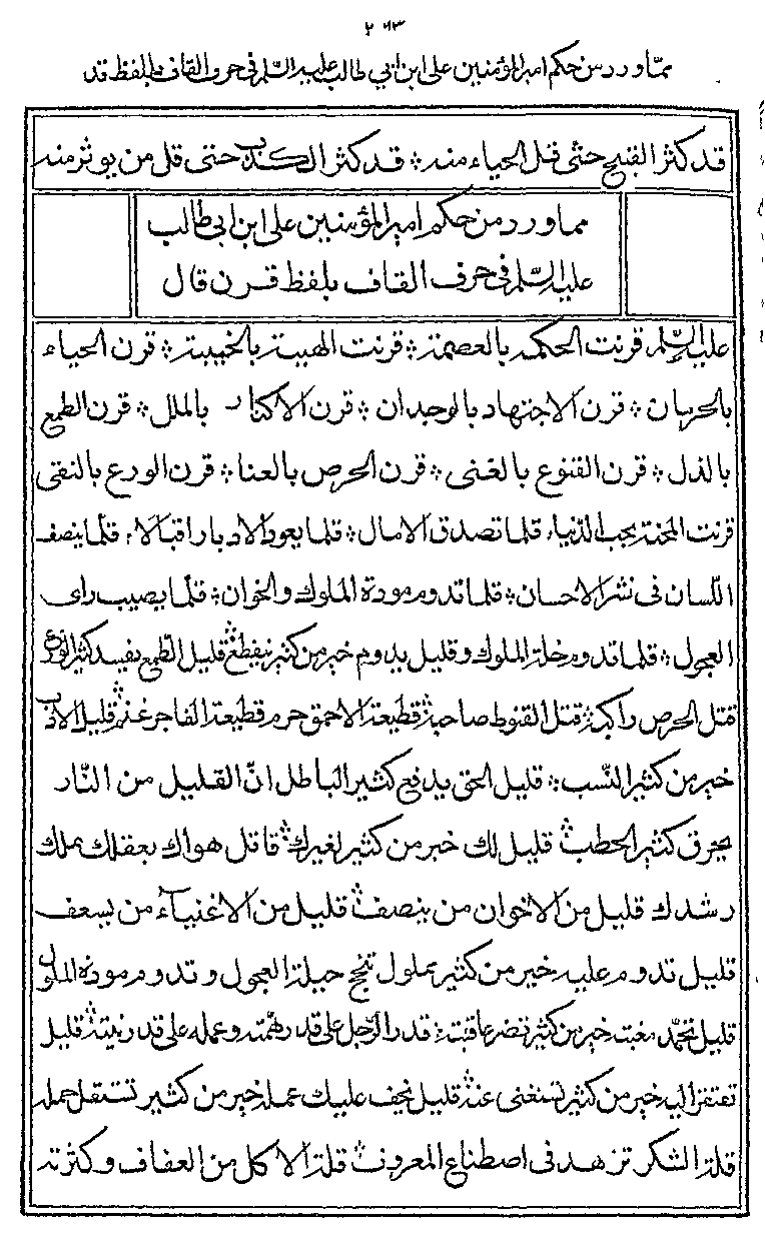 ٢٦٣
مما ورد من حكم امير المؤمنين على ابن ابي طالب عليه السلم فى حرف القاف بلفظ قد
قد كثر القبيح حتى قل الحياء منه ۞ قد كثر الكذب حتى قل من يوثر منه
مما ورد من حكم امير المؤمنين على ابن ابى طالب
عليه السلم فى حرف القاف بلفظ قرن قال
عليه السلم قرنت الحكمه بالعصمة ۞ قرنت الهيبة بالخيبة ۞ قرن الحياء
بالحرمان ۞ قرن الاجتهاد بالوجدان ۞ قرن الاكثار بالملل ۞ قرن الطمع
بالذل ۞ قرن القنوع بالغنى ۞ قرن الحرص بالعنا ۞ قرن الورع بالتقى
قرنت المحنة بحب الدنيا قلما تصدق الامال ۞ قلما يعود الادبار اقبالا قلما ينصف
اللسان فى نشر الاحسان ۞ قلما تدوم مودة الملوك والخوان ۞ قلما يصيب راى
العجول ۞ قلما تدوم خلة الملوك وقليل يدوم خير من كثير ينقطع قليل الطمع يفسد كثير الورع
قتل الحرص راكبه قتل القنوط صاحبه قطيعة الاحمق حزم قطيعة الفاجر غنم قليل الادب
خير من كثير النسب ۞ قليل الحق يدفع كثير الباطل ان القليل من النار
يحرق كثير الحطب قليل لك خير من كثير لغيرك قاتل هواك بعقلك تملك
رشدك قليل من الاخوان من ينصف قليل من الاغنياء من يسعف
قليل تدوم عليه خير من كثير مملول تنجح حيلة العجول وتدوم مودة الملول
قليل تحمد مغبته خير من كثير تضر عاقبته قدر الرجل على قدر همته وعمله على قدر نيته قليل
تفتقر اليه خير من كثير تستغنى عنه قليل يخف عليك عمله خير من كثير تستثقل حمله
قلة الشكر تزهد فى اصطناع المعروف قلة الاكل من العفاف وكثرته